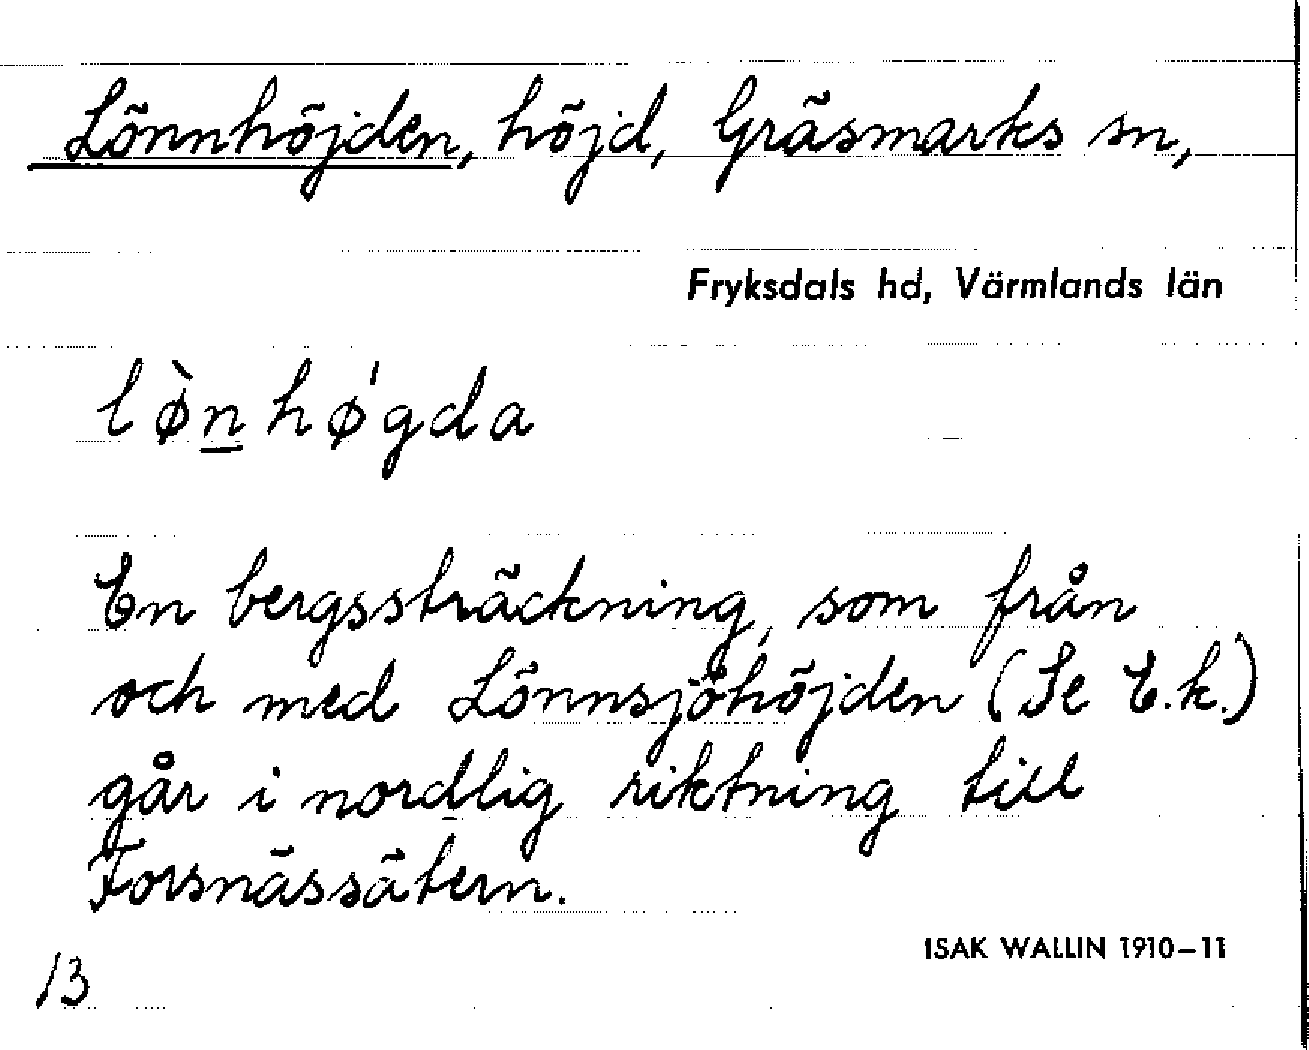 Lönnhöjden, höjd, Gräsmarks sn,
Fryksdals hd, Värmlands län
lø̀n̲hø̍gda
En bergssträckning, som från
och med Lönnsjöhöjden (Se E.k.)
går i nordlig riktning till
Forsnässätern.
ISAK WALLIN 1910–11
13